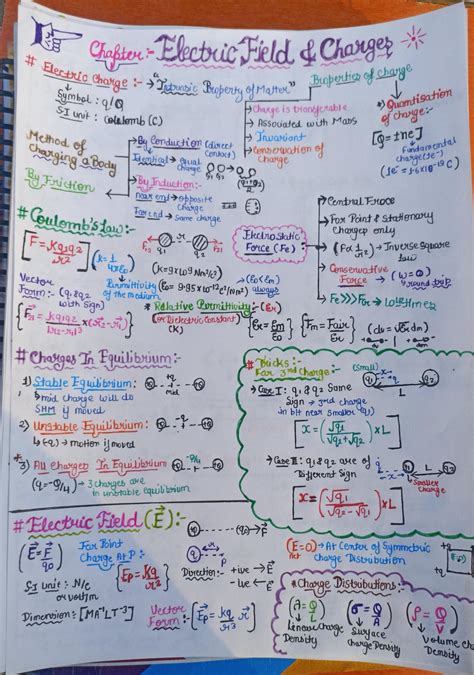 Chapter:- Electric Field & Charges
# Electric Charge:- "Intrinsic Property of Matter"
Symbol: q/Q
S.I unit: Coulomb (C)
Properties of charge
Charge is transferable
Associated with Mass
Invariant
Conservation of Charge
Quantisation of charge:
[Q = ±ne]
Fundamental
Charge (1e⁻)
Method of
Charging a Body
By Friction
By Conduction (direct Contact)
Identical → equal charge
q1 q2
(q1+q2)/2
By Induction:
near end → opposite Charge
Far end → Same charge
# Coulomb's Law:-
[F = kq1q2/r²]
(k = 1/4πε0)
Permittivity
of the medium
(k = 9×10⁹ Nm²/C²)
(ε0 < εm)
always
Vector
Form:- (q1 & q2
with Sign)
* Relative Permittivity:- (εr)
(or Dielectric Constant)
(K)
{εr = εm/ε0}
{Fm = Fair/εr}
(dw = √εr dm)
Electrostatic
Force (Fe)
Central Force
For Point & Stationary
Charges only
(Fα 1/r²) → Inverse Square
law
Conservative
Force → (W=0)
round trip
# Charges In Equilibrium:-
1) Stable Equilibrium:-
mid charge will do
SHM if moved
+q
mid
2) Unstable Equilibrium:-
(-q) → motion if moved
3) All charges In Equilibrium
(q = -Q/4) → 3 charges are
in unstable equilibrium
# Tricks:-
For 3rd Charge:-
(Small)
q1
q2
L
→ Case I: q1 & q2 Same
Sign → 3rd charge
in b/t near smaller (q1)
[x = (√q1/√q1+√q2) × L]
→ Case II: q1 & q2 are of
Different Sign
L
Smaller
Charge
[x = (√q1/√q2-√q1) × L]
# Electric Field (E⃗):-
(E⃗ = F⃗/q0)
S.I unit: N/C
or volt/m
Dimension: [MA⁻¹LT⁻³]
For Point
Charge At P:-
{Ep = Kq/r²}
Direction:-
+ive → E⃗
-ive ← E⃗
Vector
Form:-
[E⃗p = kq/r³ r⃗]
(E=0) → At Center of Symmetric
net
Charge Distribution
* Charge Distributions:-
(λ = Q/L)
Linear Charge
Density
(σ = Q/A)
Surface
Charge Density
(ρ = Q/V)
Volume
Density